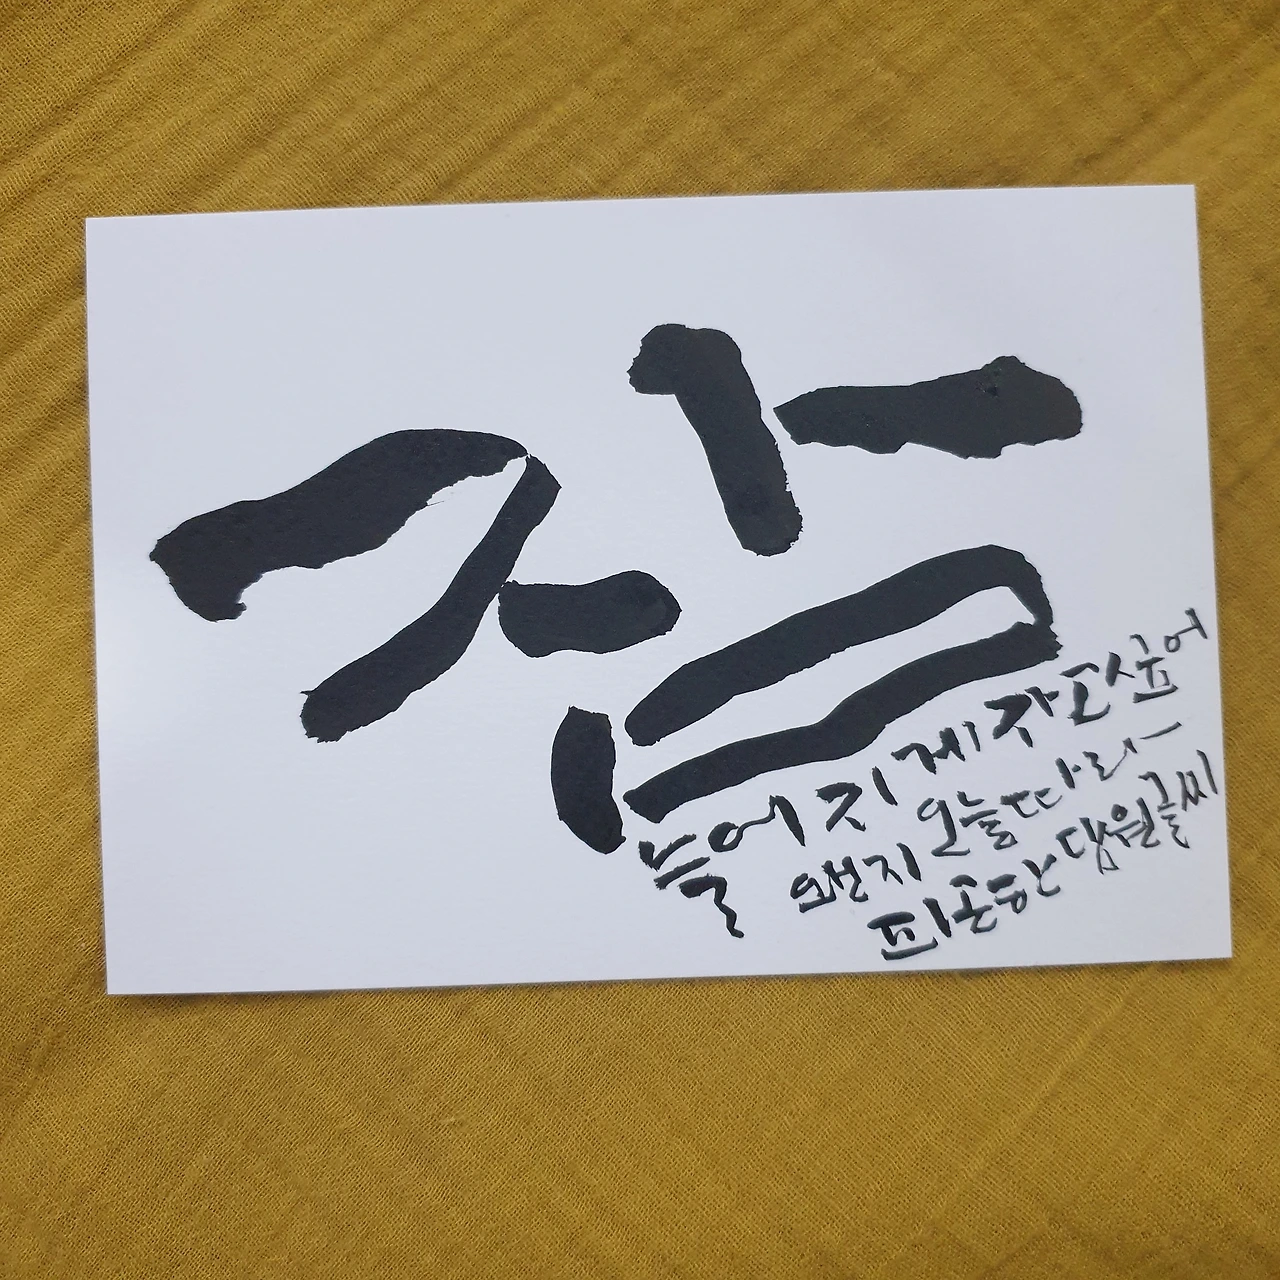 잠
늘어지게 자고싶어
왠지 오늘따라
피곤한 담원글씨